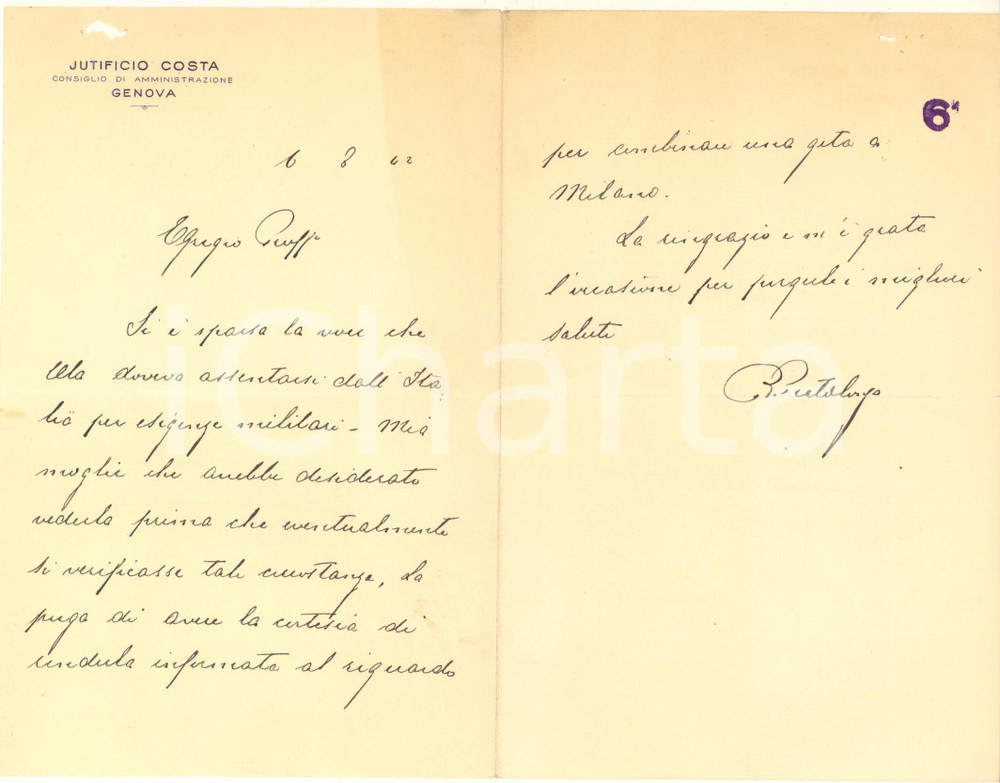 JUTIFICIO COSTA
CONSIGLIO DI AMMINISTRAZIONE
GENOVA
6 8 42
Egregio
Si è sparsa la voce che
Ella doveva assentarsi dall'Ita
lia per esigenze militari - Mia
moglie che avrebbe desiderato
vederla prima che eventualmente
si verificasse tale circostanza, La
prega di avere la cortesia di
renderla informata al riguardo
6
per combinare una gita a
Milano.
La ringrazio e m'è grata
l'occasione per porgerle i migliori
saluti
iCharta